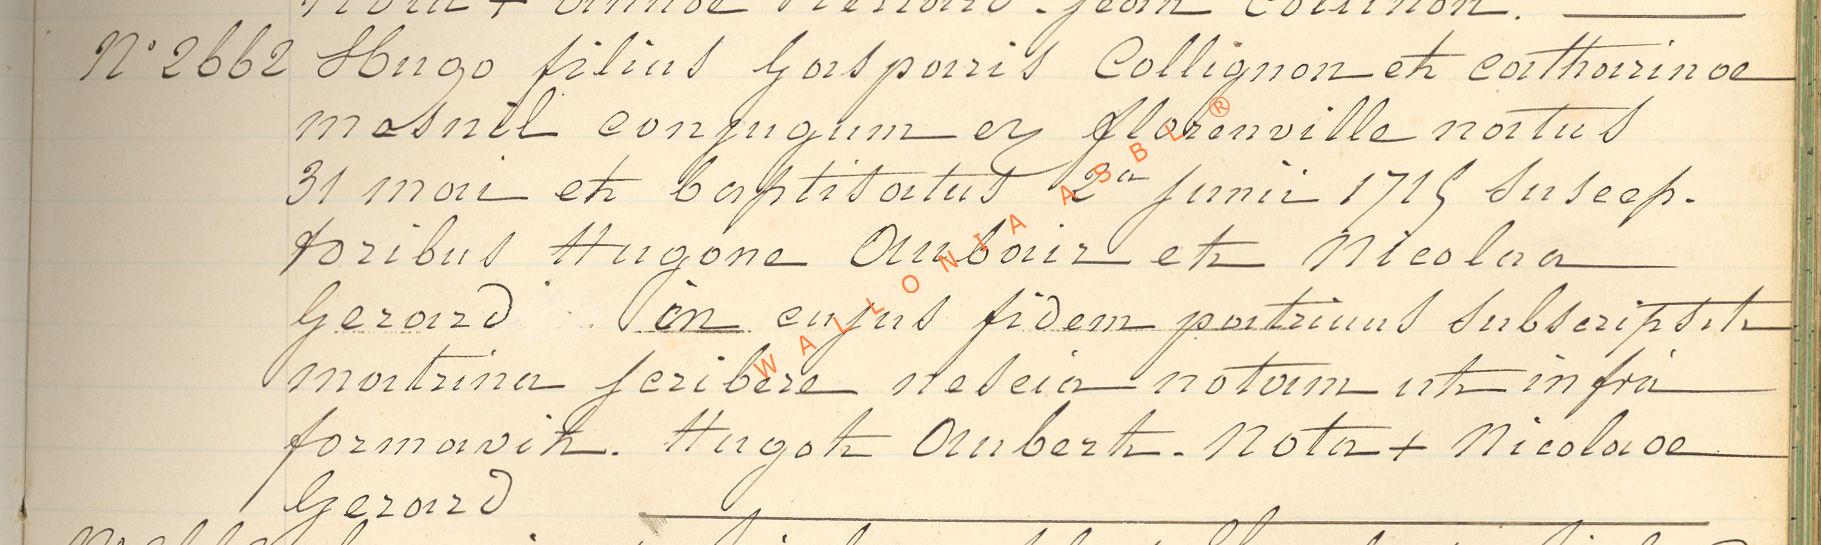 Nota + Annae Renard. Jean Collinon.
N° 2662 Hugo filius Gasparis Collignon et catharinae
mesnil conjugum ex florenville natus
31 mai et baptisatus 2a junii 1715 suscep-
toribus Hugone Aubair et Nicolaa
Gerard in cujus fidem patrinus subscripsit
matrina scribere nescia notam ut infra
formavit. Hugot Aubert. Nota + Nicolaae
Gerard
WALLONIA ASBL ®